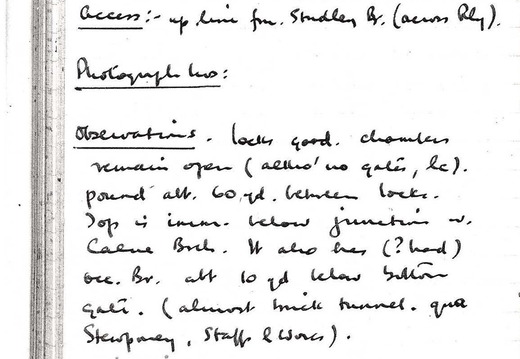 Access:- up line fm. Studley Br. (across Rly).
Photograph Nos:
Observations. locks good. chambers
remain open (altho' no gates, &c).
pound abt. 60 yd. between locks.
Top is imm. below junction w.
Calne Brch. It also has (? had)
occ. Br. abt 10 yd below bottom
gate. (almost brick tunnel. qua
Stewponey, Staffs & Worcs).